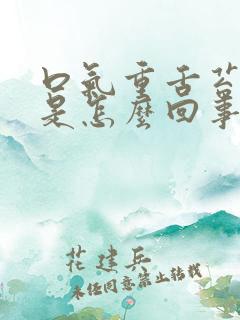 口氣重舌苔
是怎麼回事
花建兵
未经同意禁止转载